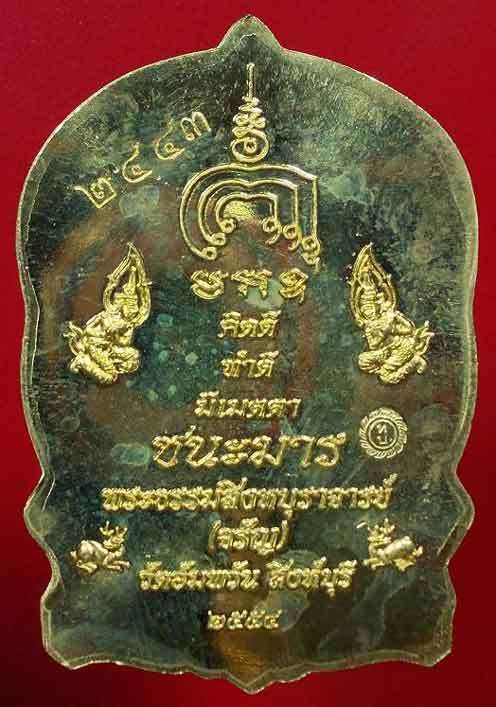 ๒๕๕๓
คิดดี
ทำดี
มีเมตตา
ชนะมาร
พระธรรมสิงหบุราจารย์
(จรัญ)
วัดอัมพวัน สิงห์บุรี
๒๕๕๔